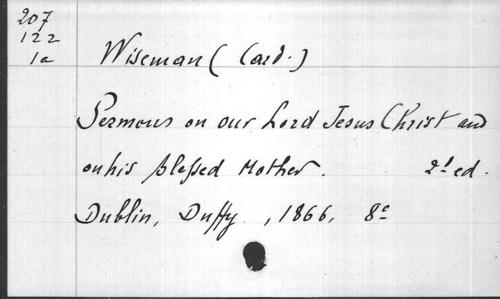 207
122
1a
Wiseman (Card.)
Sermons on our Lord Jesus Christ and
on his Blessed Mother. 2d ed.
Dublin, Duffy, 1866, 8o